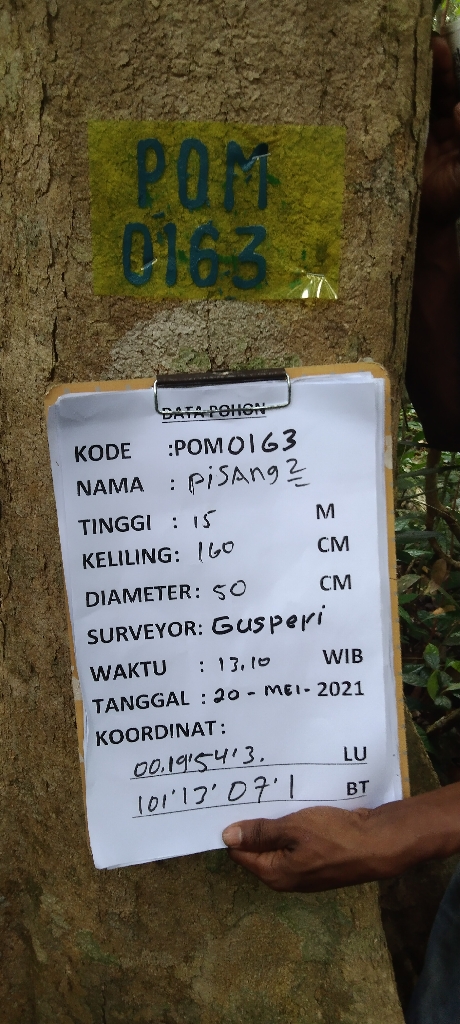 POM
0163
DATA POHON
KODE :POM0163
NAMA : PiSAng2
TINGGI : 15 M
KELILING: 160 CM
DIAMETER: 50 CM
SURVEYOR: Gusperi
WAKTU : 13.10 WIB
TANGGAL : 20 - MEI - 2021
KOORDINAT:
00.19'54'3. LU
101'13'07'1 BT